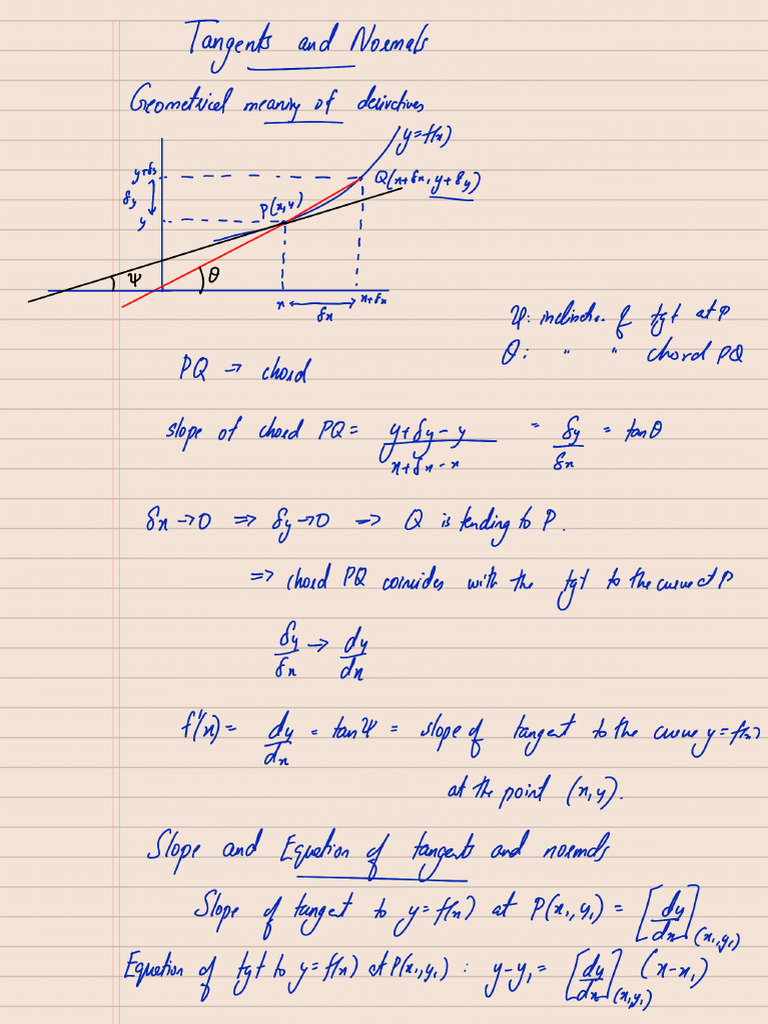 Tangents and Normals
Geometrical meaning of derivatives
y=f(x)
y+δy
Q(x+δx, y+δy)
δy
P(x,y)
y
ψ
θ
x
x+δx
δx
ψ: inclination of tgt at P
θ: " " chord PQ
PQ → chord
slope of chord PQ = y+δy-y / x+δx-x = δy/δx = tanθ
δx→0 ⇒ δy→0 → Q is tending to P.
⇒ chord PQ coincides with the tgt to the curve at P
δy/δx → dy/dx
f'(x) = dy/dx = tanψ = slope of tangent to the curve y=f(x)
at the point (x,y).
Slope and Equation of tangents and normals
Slope of tangent to y=f(x) at P(x₁,y₁) = [dy/dx](x₁,y₁)
Equation of tgt to y=f(x) at P(x₁,y₁) : y-y₁ = [dy/dx](x₁,y₁) (x-x₁)